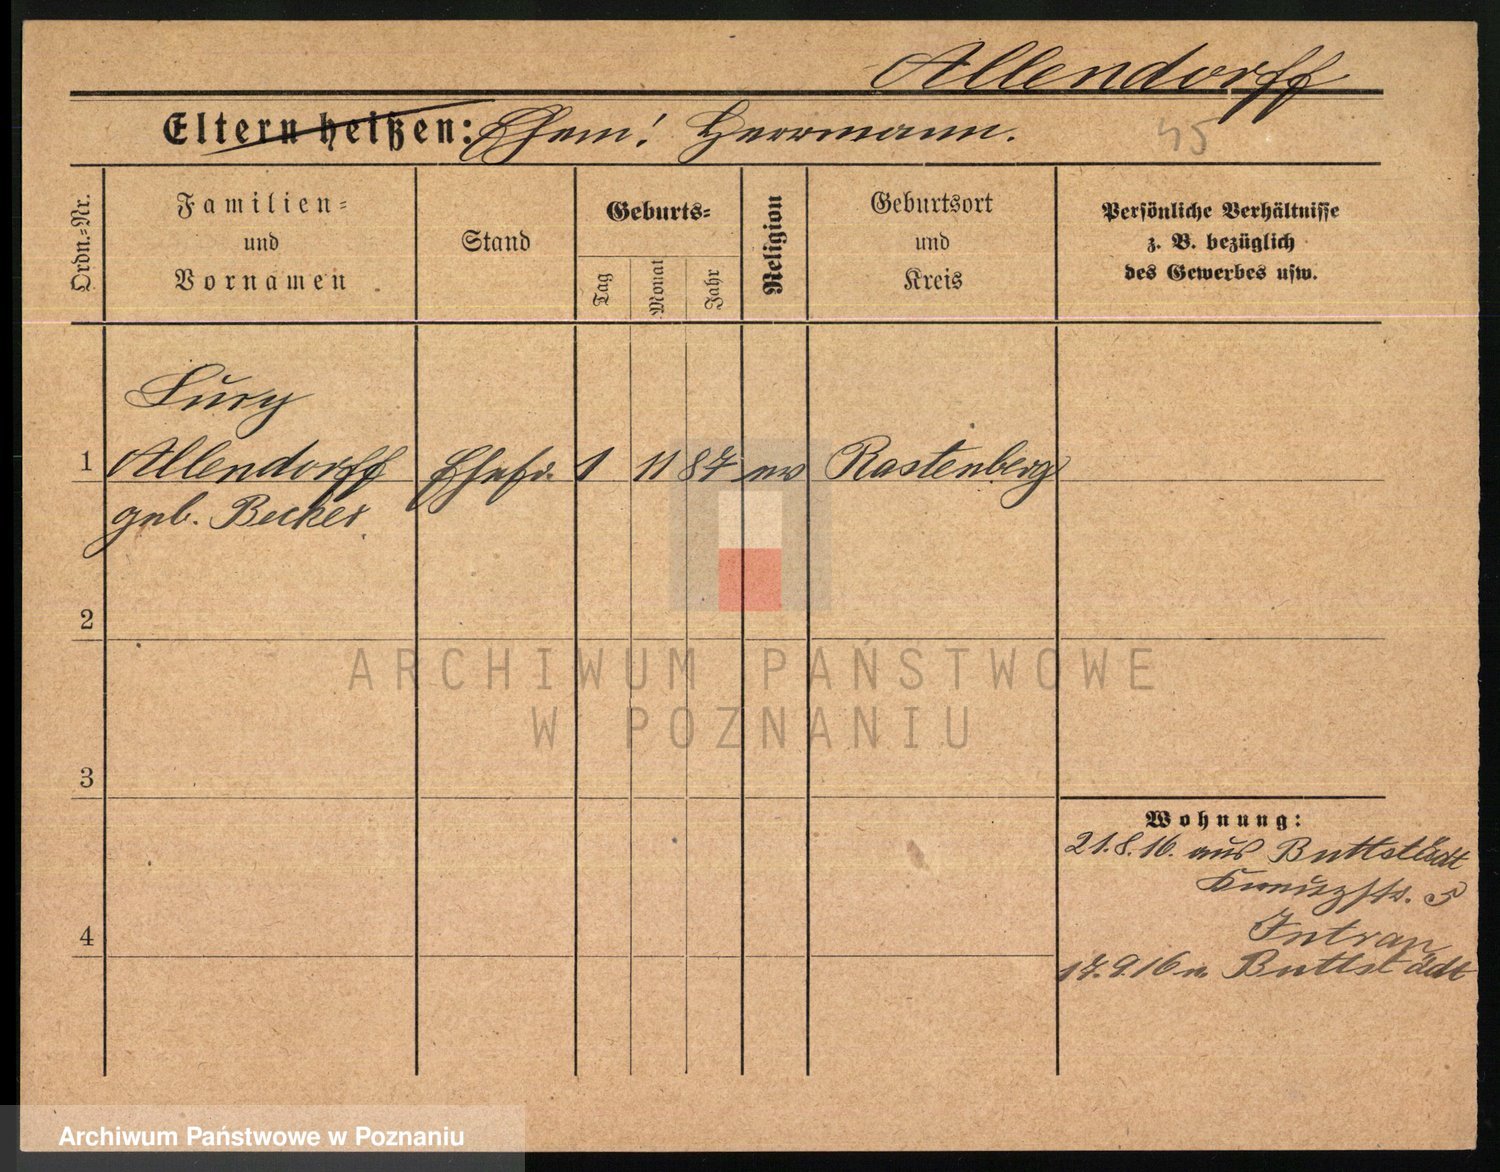 Allendorff
Eltern heißen: Ehem: Herrmann.
45
Ordn.=Nr.
Familien=
und
Vornamen
Stand
Geburts=
Tag
Monat
Jahr
Religion
Geburtsort
und
Kreis
Persönliche Verhältnisse
z. B. bezüglich
des Gewerbes usw.
Lucy
1 Allendorff Ehefr. 1 11 87 ev Rastenberg
geb. Becker
2
3
4
Wohnung:
21.8.16. aus Buttstädt
Kreuzstr. 5
17.9.16 n. Buttstädt
ARCHIWUM PAŃSTWOWE
W POZNANIU
Archiwum Państwowe w Poznaniu